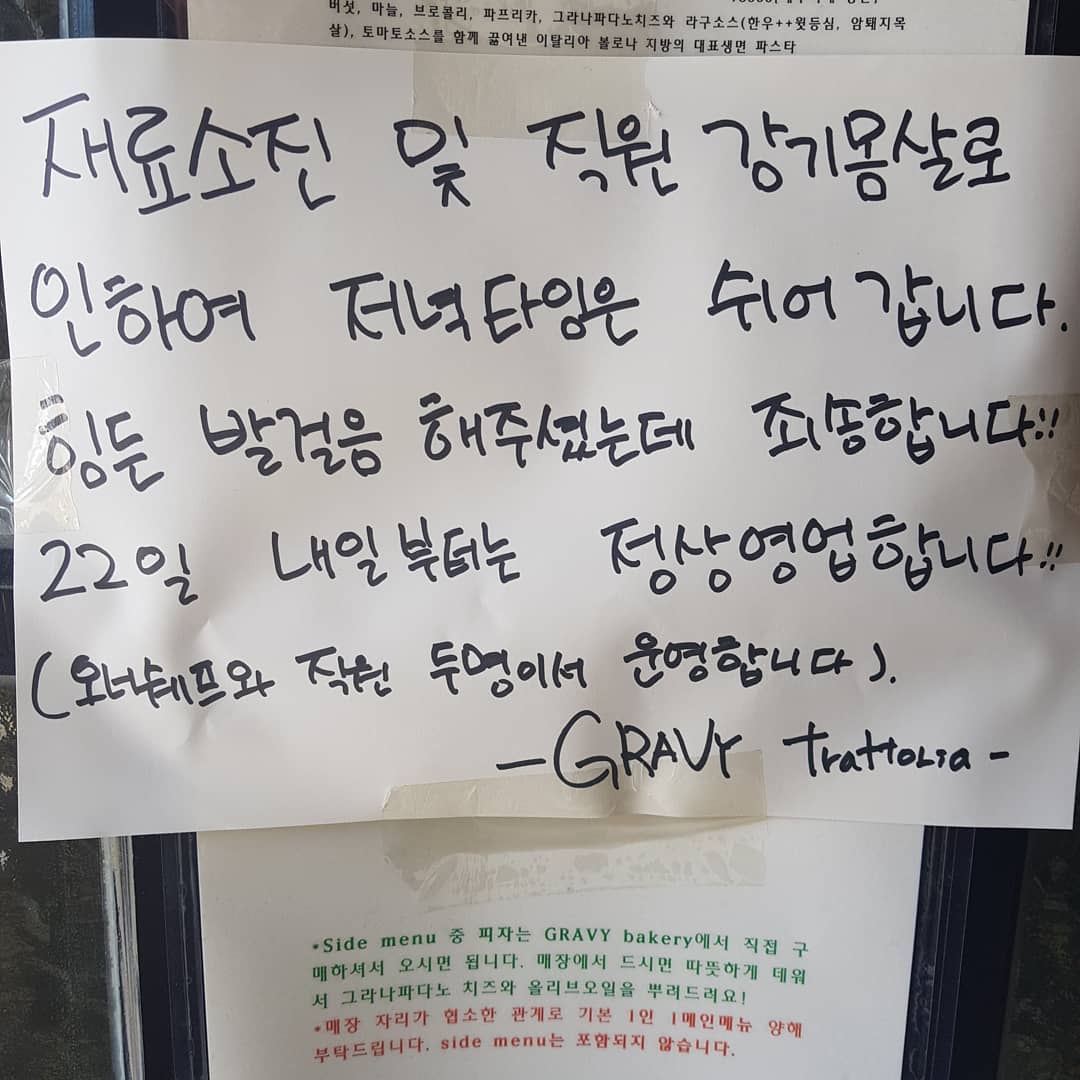 버섯, 마늘, 브로콜리, 파프리카, 그라나파다노치즈와 라구소스(한우++윗등심, 암퇘지목
살), 토마토소스를 함께 끓여낸 이탈리아 볼로냐 지방의 대표생면 파스타
재료소진 및 직원 감기몸살로
인하여 저녁타임은 쉬어 갑니다.
힘든 발걸음 해주셨는데 죄송합니다!!
22일 내일부터는 정상영업합니다!!
(오너쉐프와 직원 두명이서 운영합니다).
-GRAVY trattoria-
*Side menu 중 피자는 GRAVY bakery에서 직접 구
매하셔서 오시면 됩니다. 매장에서 드시면 따뜻하게 데워
서 그라나파다노 치즈와 올리브오일을 뿌려드려요!
*매장 자리가 협소한 관계로 기본 1인 1메인메뉴 양해
부탁드립니다. side menu는 포함되지 않습니다.